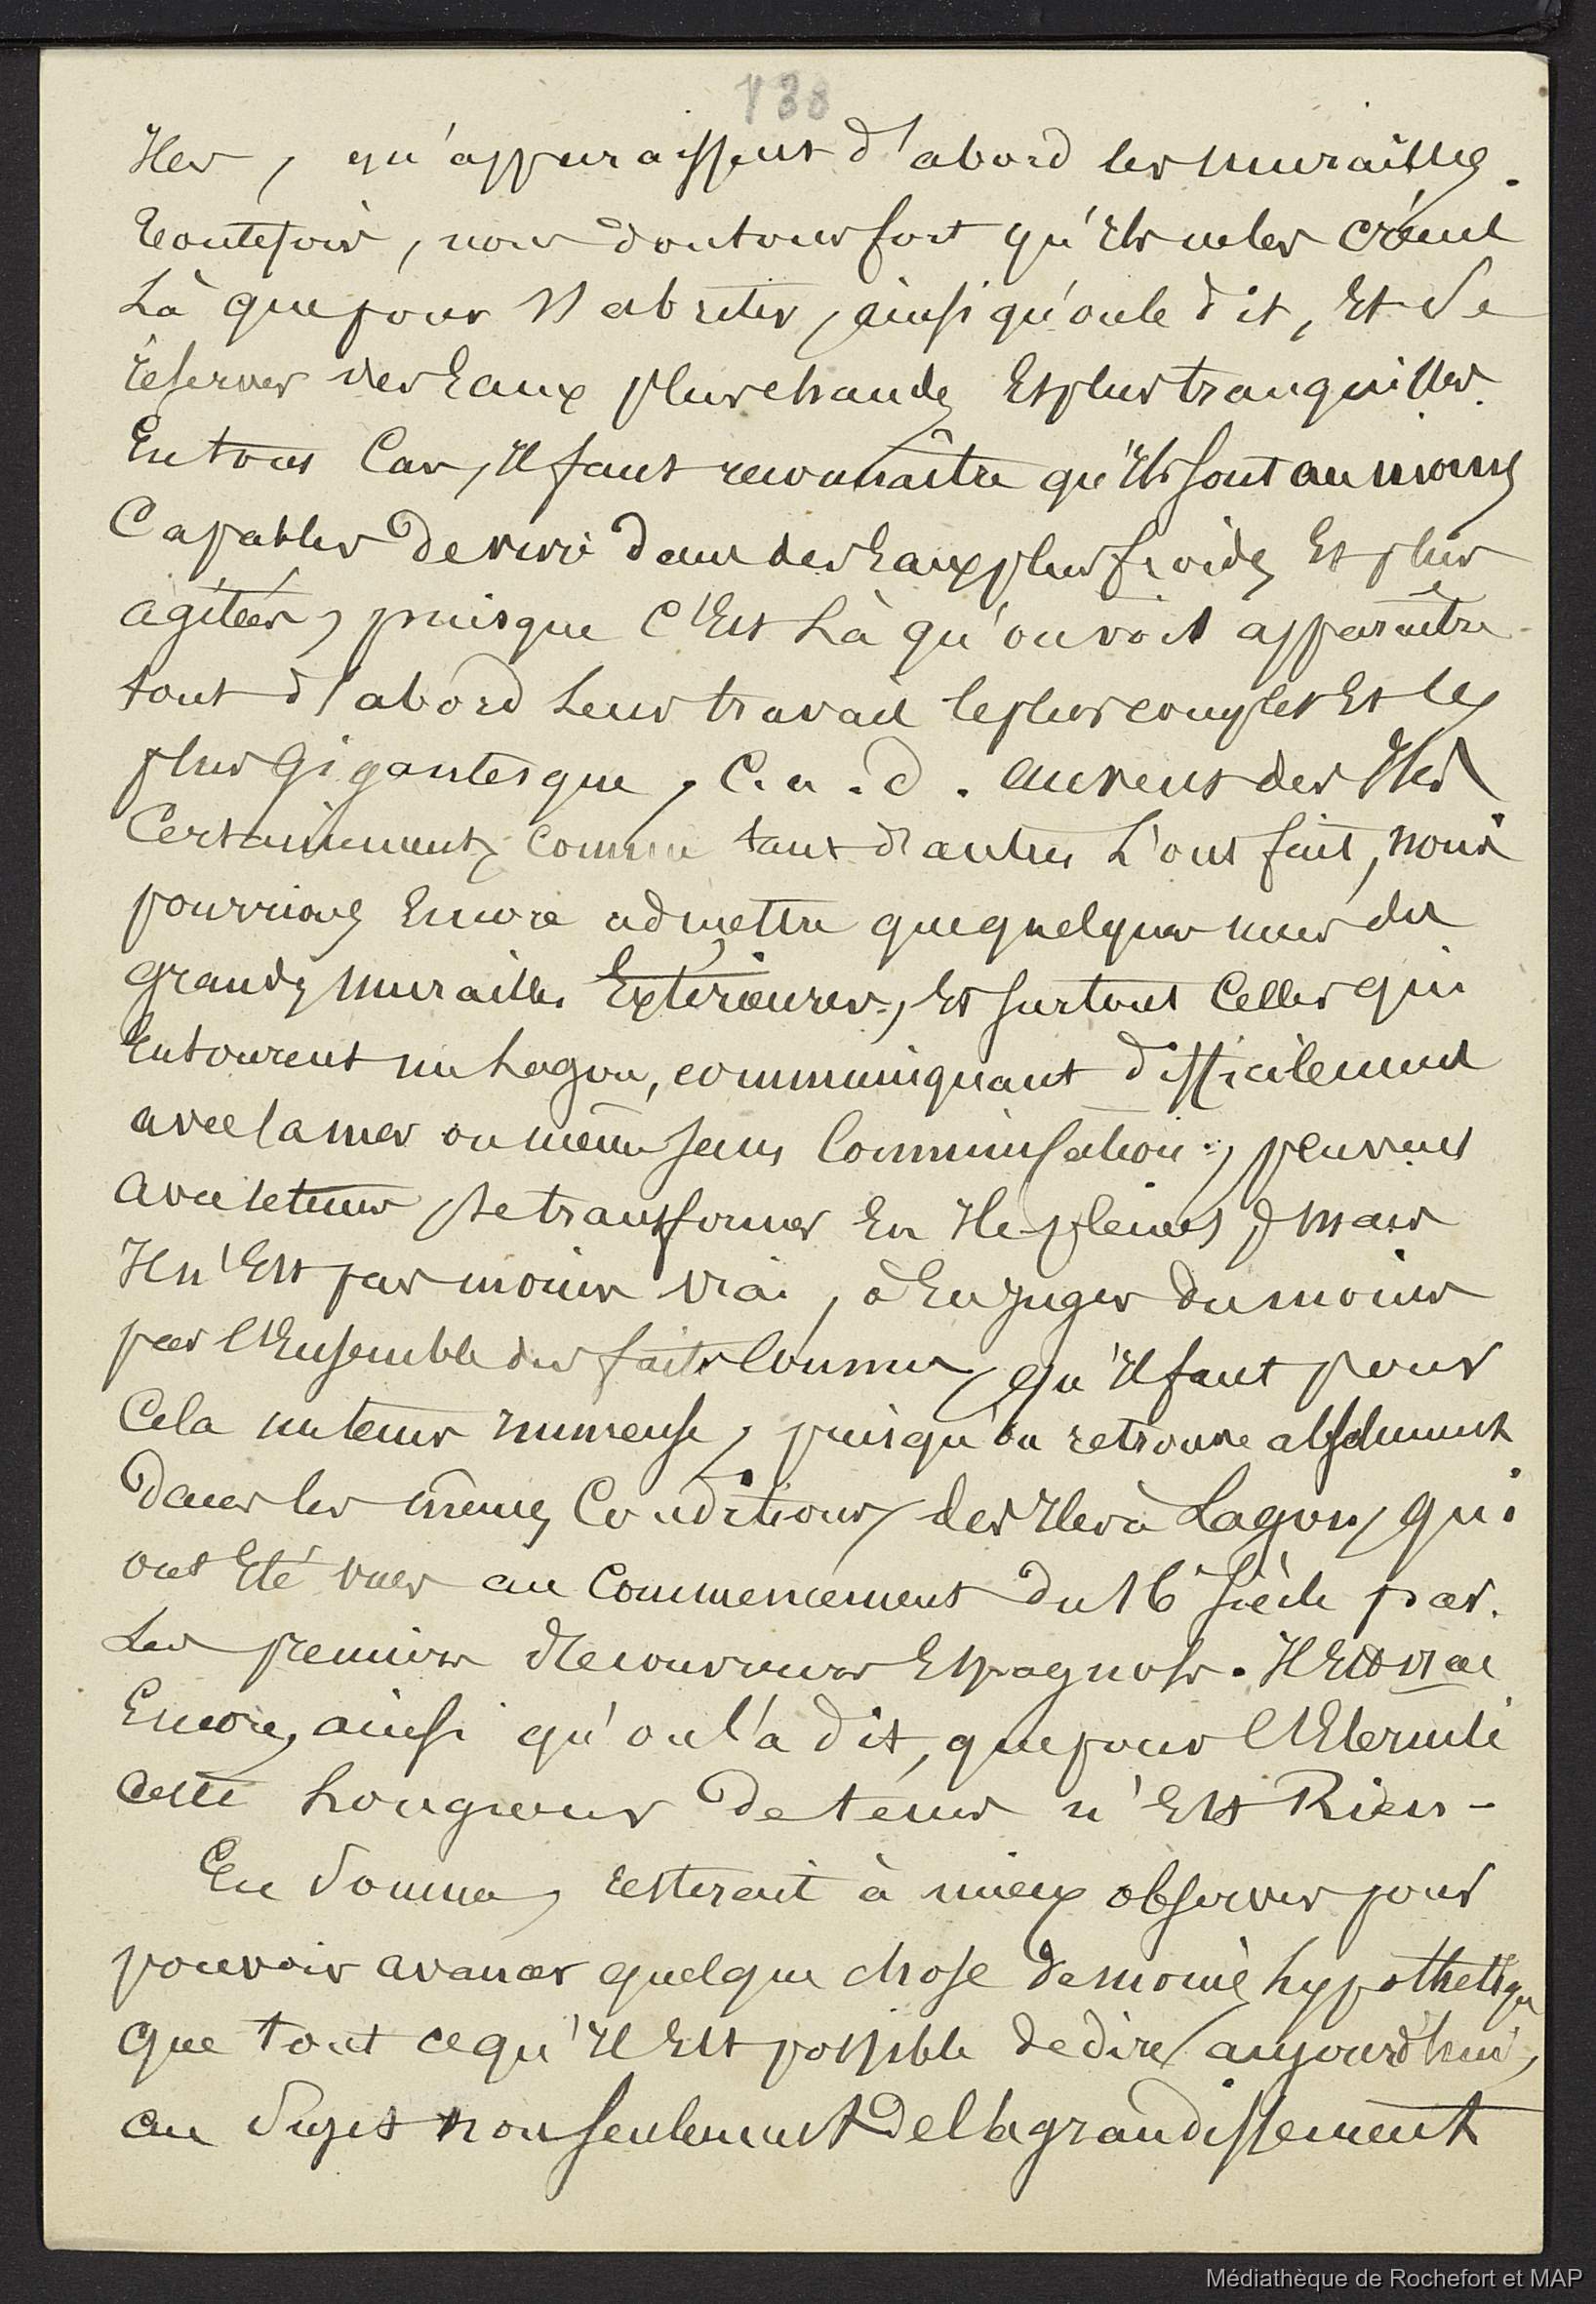 138
Iles, qu'apparaissent d'abord les murailles.
Toutefois, nous doutons fort qu'ils ne les créent
Là que pour s'abriter, ainsi qu'on le dit, Et se
réserver des Eaux plus chaudes Et plus tranquilles.
En tous Cas, Il faut reconnaître qu'Ils sont au moins
Capables de vivre dans des Eaux plus froides Et plus
agitées, puisque C'Est Là qu'on voit apparaître
tout d'abord Leur travail le plus complet Et le
plus Gigantesque, C. a. d. au vent des Iles
Certainement, comme tant d'autres L'ont fait, nous
pourrions Encore admettre que quelques unes des
Grandes murailles Extérieures, Et surtout Celles qui
Entourent un Lagon, communiquant difficilement
avec la mer ou même sans Communication, peuvent
avec le tems, se transformer En Iles pleines, mais
Il n'Est pas moins vrai, à En juger du moins
par l'Ensemble des faits Connus, qu'Il faut pour
Cela un tems Immense, puisqu'on retrouve absolument
dans les mêmes Conditions, des Iles à Lagon, qui
ont Eté vues au Commencement du 16e Siècle par
Les premiers découvreurs Espagnols. Il Est vrai
Encore, ainsi qu'on l'a dit, que pour l'Eternité
cette Longueur de tems n'Est Rien -
En Somme, resterait à mieux observer pour
pouvoir avancer quelque chose de moins hypothétique
que tout ce qu'Il Est possible de dire, aujourd'hui,
au Sujet non seulement de l'agrandissement
Médiathèque de Rochefort et MAP